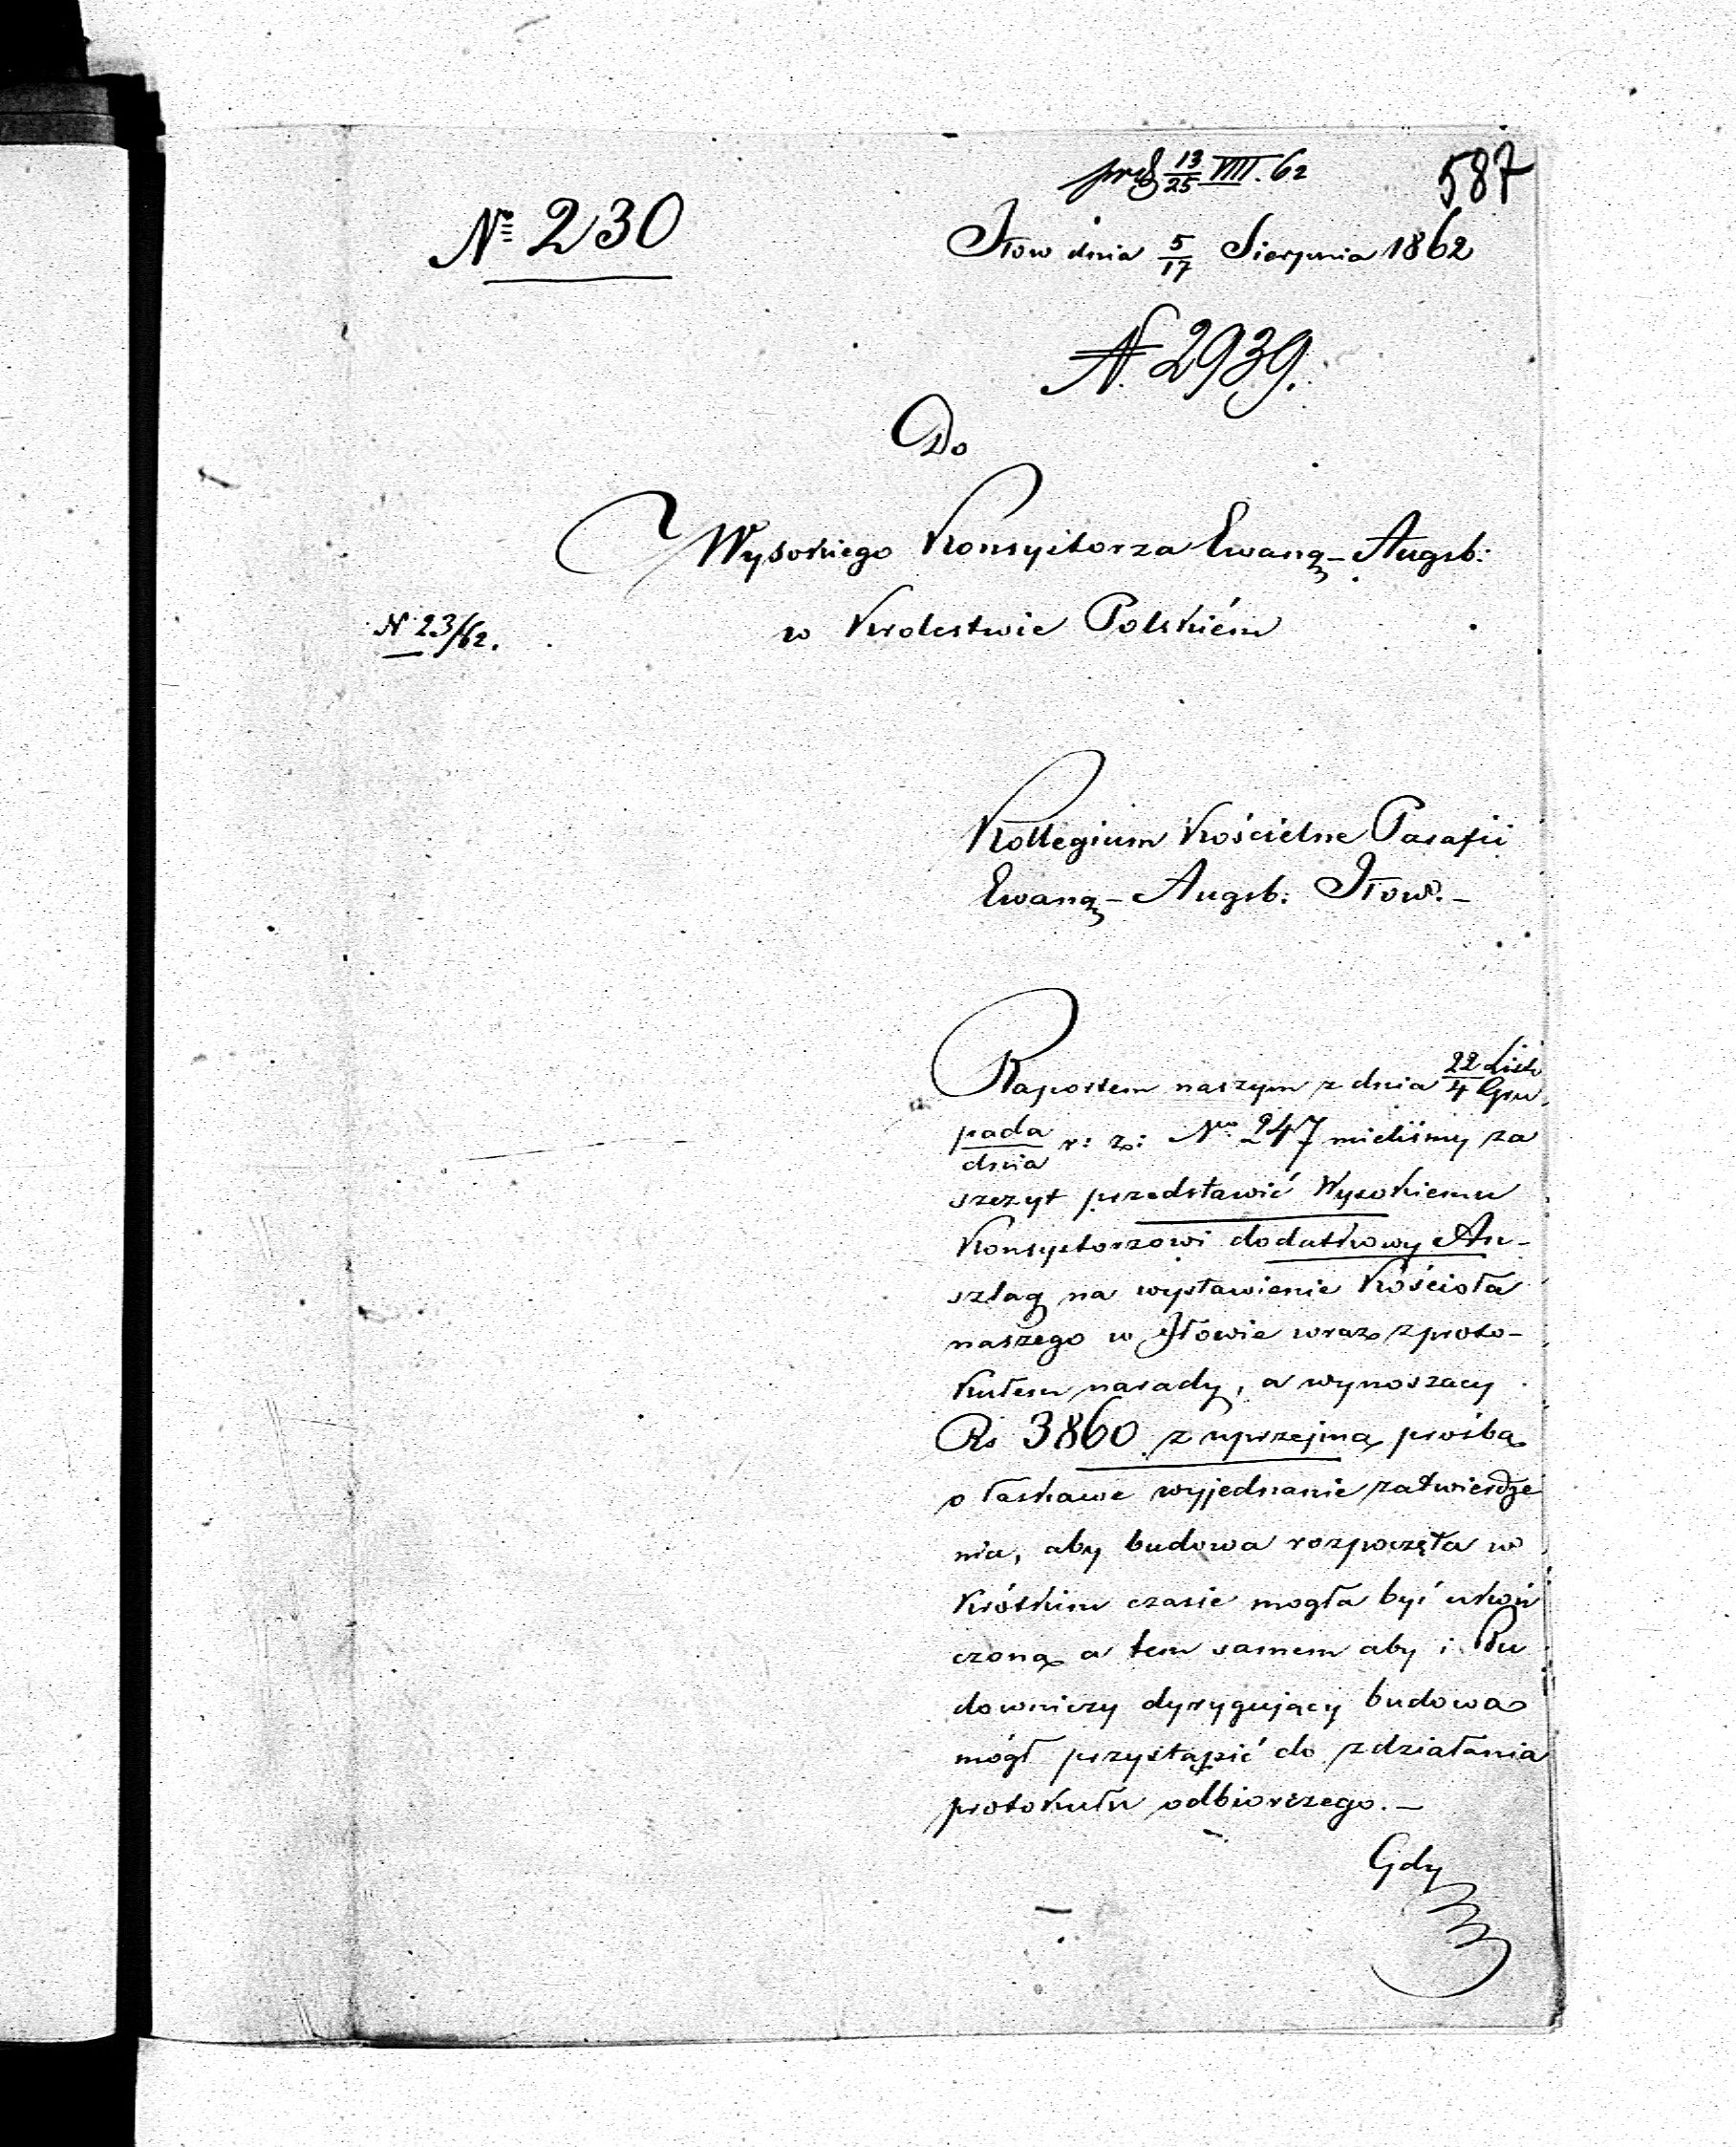 prs 13/25 VIII. 62
587
№ 230
Iłow dnia 5/17 Sierpnia 1862
N. 2939.
Do
Wysokiego Konsystorza Ewang- Augsb:
N 23/62.
w Krolestwie Polskiém
Kollegium Kościelne Parafii
Ewang- Augsb: Iłow.-
Raportem naszym z dnia 22 Listo/4 Gru
pada/dnia r: z: No 247 mieliśmy za
szczyt przedstawić Wysokiemu
Konsystorzowi dodatkowy An-
szlag na wystawienie Kościoła
naszego w Iłowie wraz z proto-
kułem narady, a wynoszacy
Rs 3860 z uprzejmą prośbą
o łaskawe wyjednanie zatwierdze
nia, aby budowa rozpoczęta w
krótkim czasie mogła być ukoń
czoną a tem samem aby i Bu
downiczy dyrygujący budową
mógł przystąpić do zdziałania
protokułu odbiorczego.-
Gdy